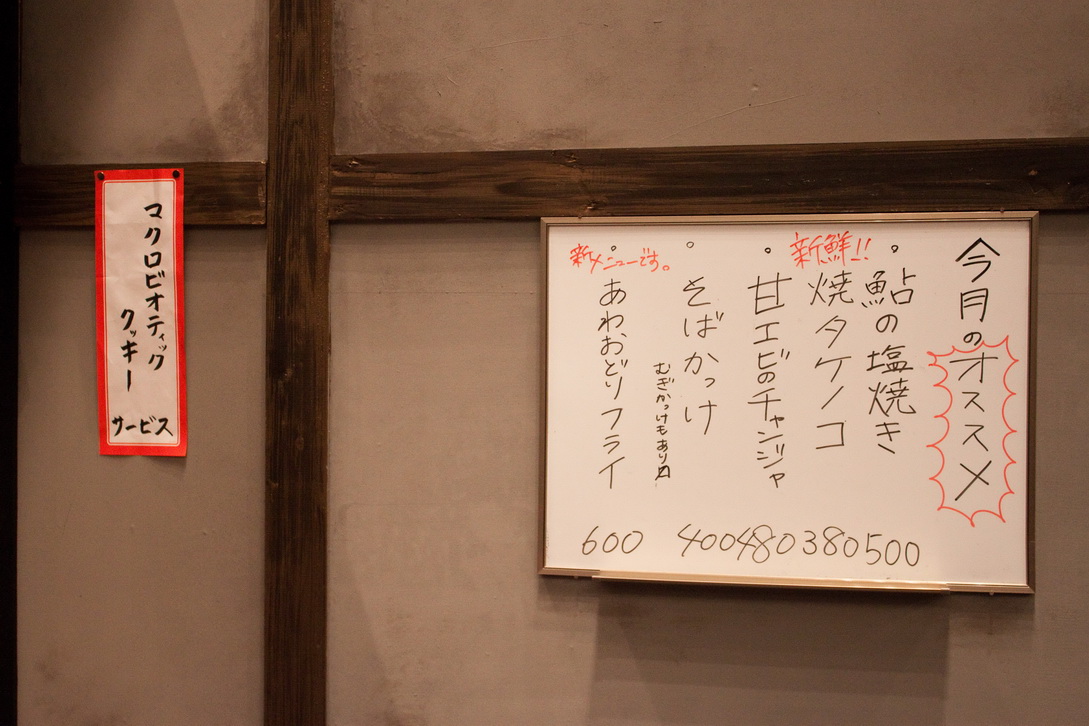 今月のオススメ
。鮎の塩焼き 500
新鮮!!
焼タケノコ 380
。甘エビのチャンジャ 480
。そばかっけ 400
むぎかっけもあり〼
新メニューです。
。あわおどりフライ 600
マクロビオティック
クッキー
サービス